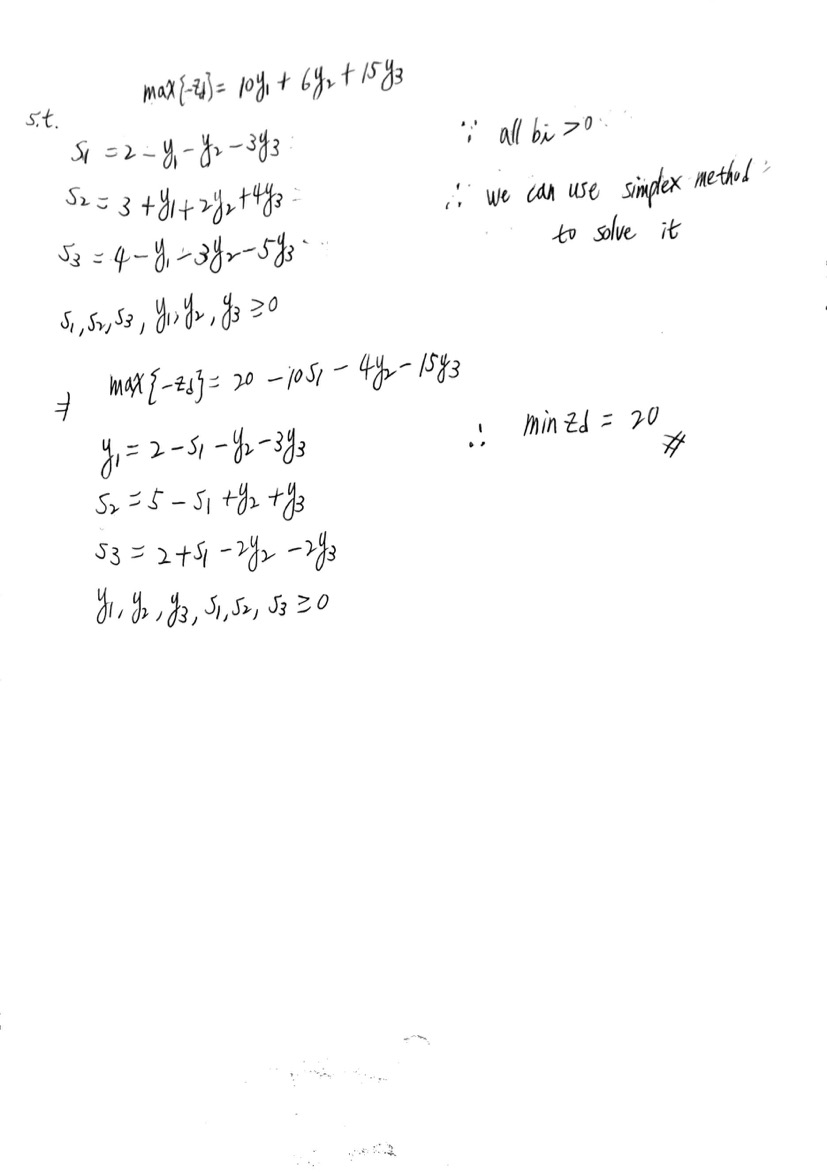 max{-Zd} = 10y₁ + 6y₂ + 15y₃
s.t.
S₁ = 2 - y₁ - y₂ - 3y₃
S₂ = 3 + y₁ + 2y₂ + 4y₃
S₃ = 4 - y₁ - 3y₂ - 5y₃
S₁, S₂, S₃, y₁, y₂, y₃ ≥ 0
∵ all bi > 0
∴ we can use simplex method
to solve it
⇒ max{-Zd} = 20 - 10S₁ - 4y₂ - 15y₃
y₁ = 2 - S₁ - y₂ - 3y₃
S₂ = 5 - S₁ + y₂ + y₃
S₃ = 2 + S₁ - 2y₂ - 2y₃
y₁, y₂, y₃, S₁, S₂, S₃ ≥ 0
∴ min Zd = 20 #